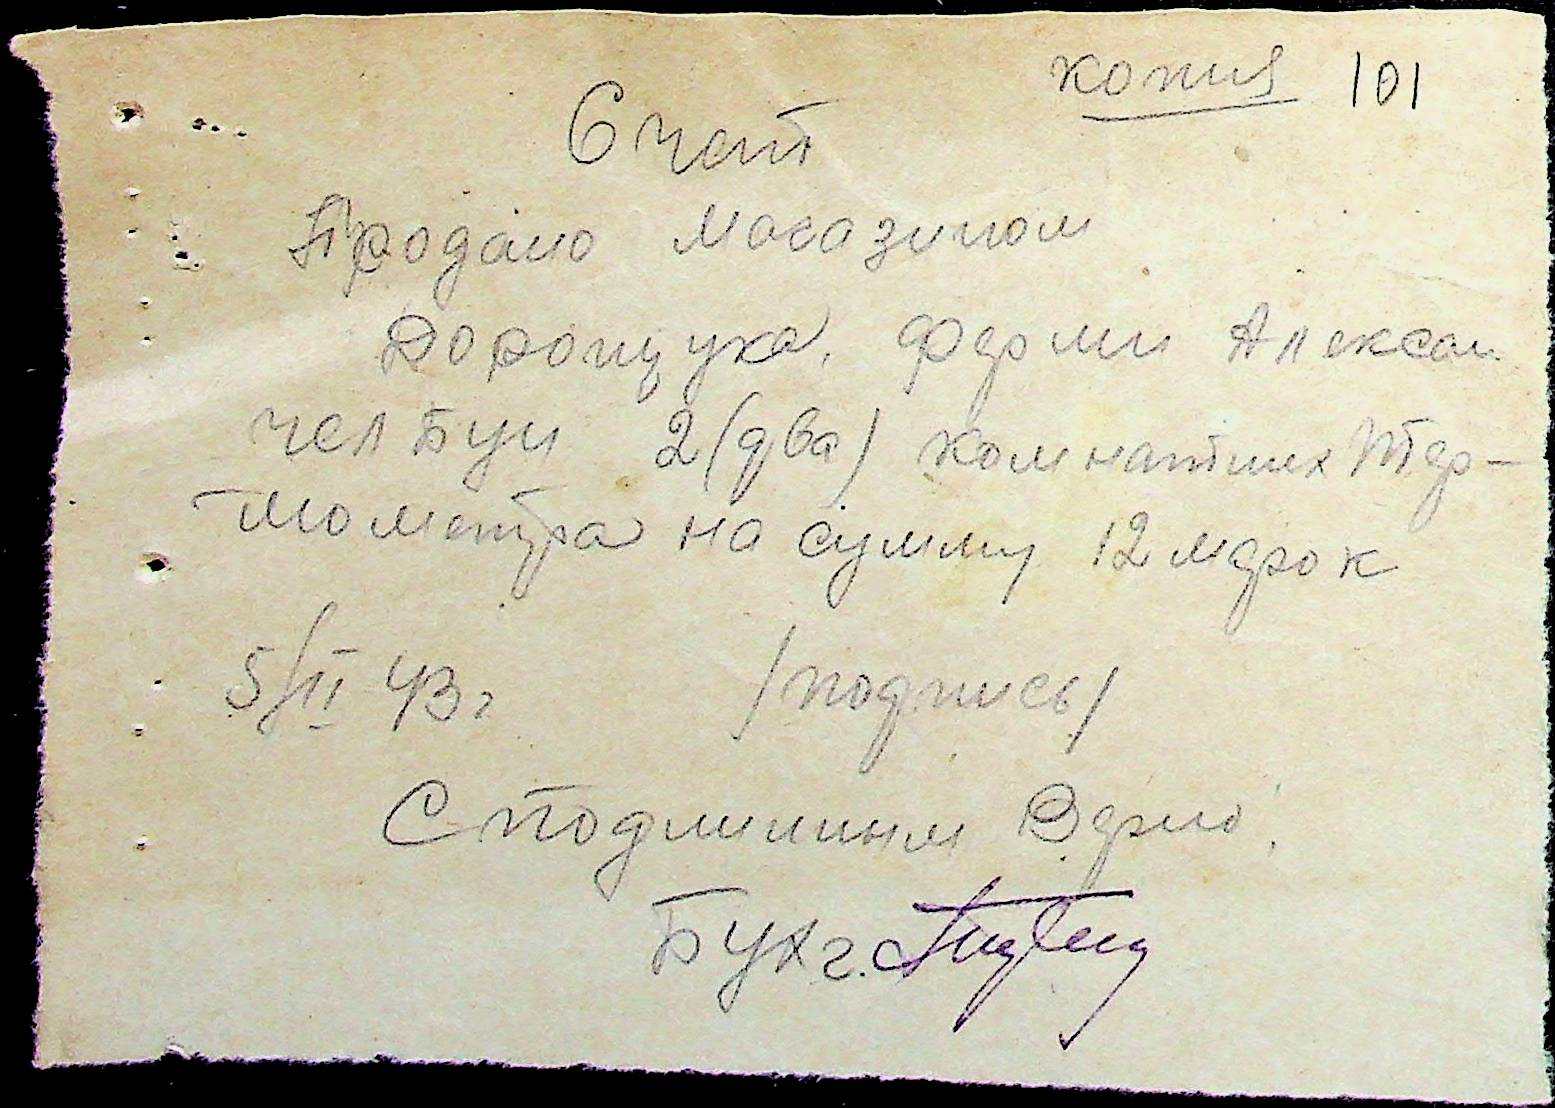 копия 101
Счет
Продано магазином
Дорощука, ферми Алексан
2 (два) комнатних тер-
мометра на сумму 12 марок
5/II 43 г /подпись/
С подлинным Верно:
Бухг.